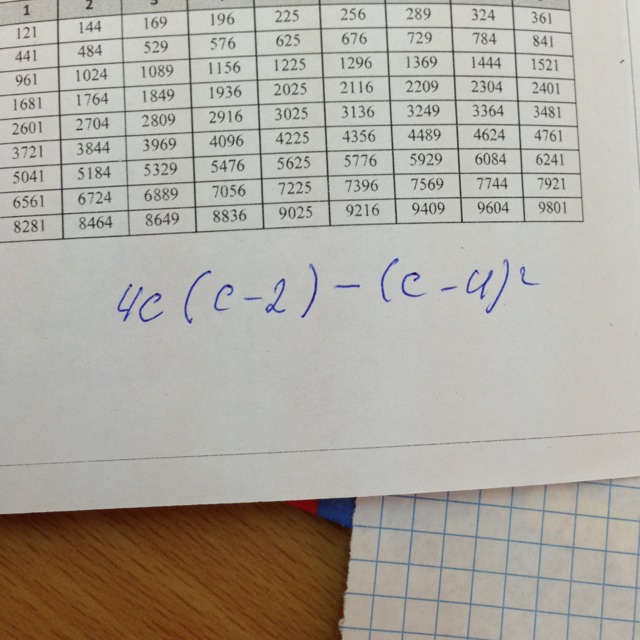 1 2 3
121 144 169 196 225 256 289 324 361
441 484 529 576 625 676 729 784 841
961 1024 1089 1156 1225 1296 1369 1444 1521
1681 1764 1849 1936 2025 2116 2209 2304 2401
2601 2704 2809 2916 3025 3136 3249 3364 3481
3721 3844 3969 4096 4225 4356 4489 4624 4761
5041 5184 5329 5476 5625 5776 5929 6084 6241
6561 6724 6889 7056 7225 7396 7569 7744 7921
8281 8464 8649 8836 9025 9216 9409 9604 9801
4c(c-2)-(c-4)²